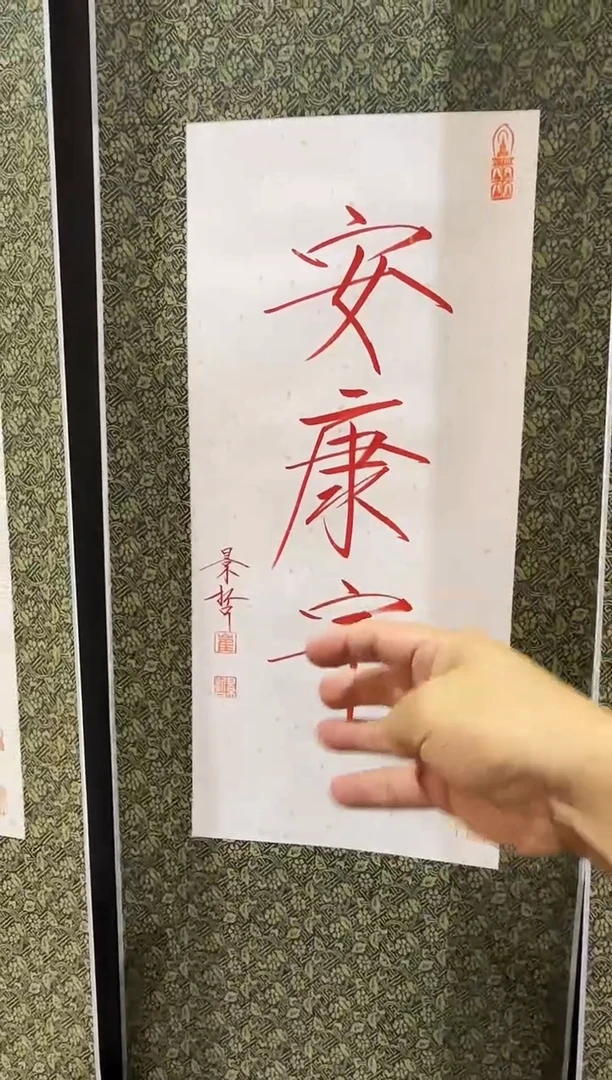 安康
景哲